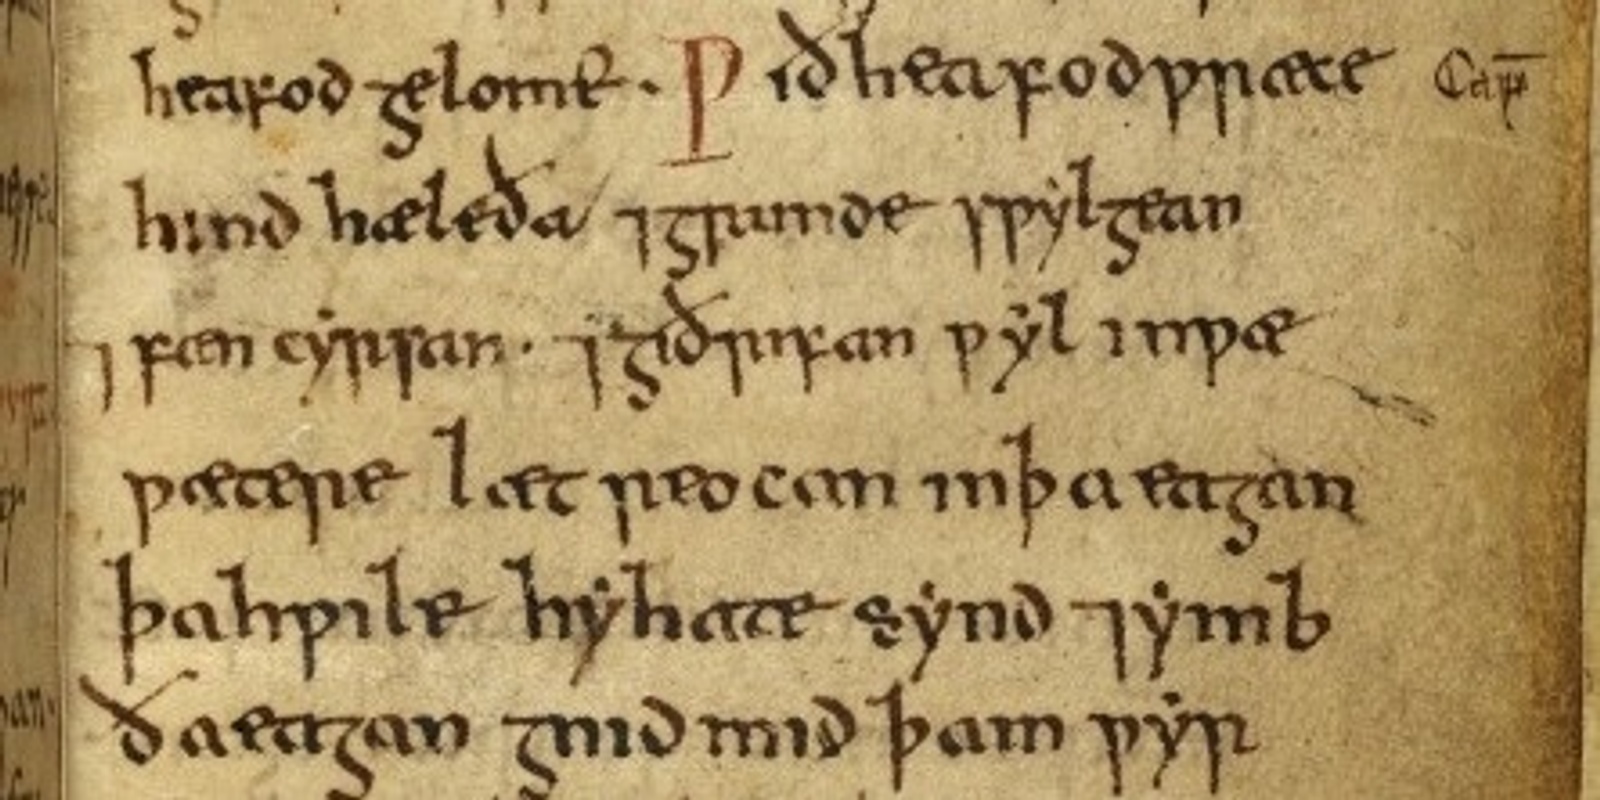 heafod gelome · Ƿið heafodwræce
hind hæleða ⁊ grunde swylgean
⁊ fæn cyrsan · ⁊ giðrifan wyl in wæ
wætere læt reocan in þa eagan
þa hwile hy hate synd ⁊ ymb
ða eagan gnid mid þam wyr